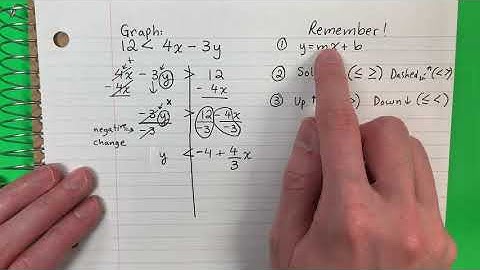 Graph:
12 < 4x - 3y
+
4x - 3y > 12
- 4x - 4x
x
- 3y > 12 - 4x
negative -3 -3 -3
change
y < -4 + 4/3 x
Remember!
① y = mx + b
② (≤ ≥) Dashed (< >)
③ Up ↑ Down ↓ (≤ <)